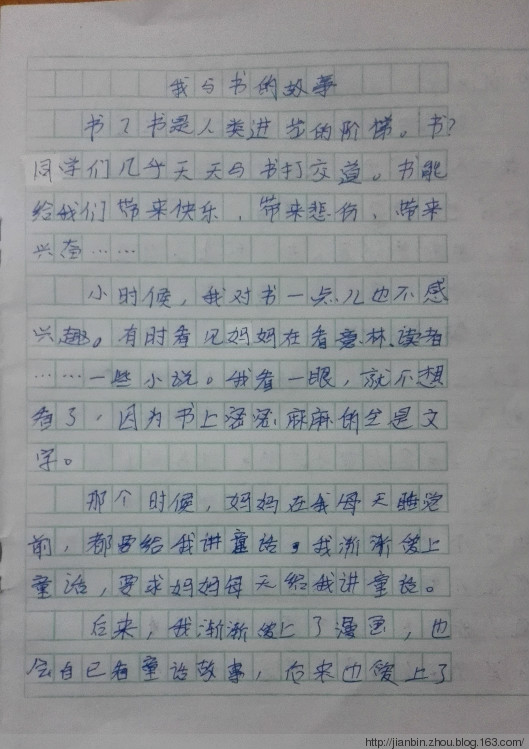 我与书的故事
书?书是人类进步的阶梯。书?
同学们几乎天天与书打交道。书能
给我们带来快乐,带来悲伤,带来
兴奋……
小时候,我对书一点儿也不感
兴趣。有时看见妈妈在看意林、读者
……一些小说。我看一眼,就不想
看了,因为书上密密麻麻的全是文
字。
那个时候,妈妈在我每天睡觉
前,都要给我讲童话。我渐渐爱上
童话,要求妈妈每天给我讲童话。
后来,我渐渐爱上了漫画,也
会自己看童话故事,后来也爱上了
http://jianbin.zhou.blog.163.com/